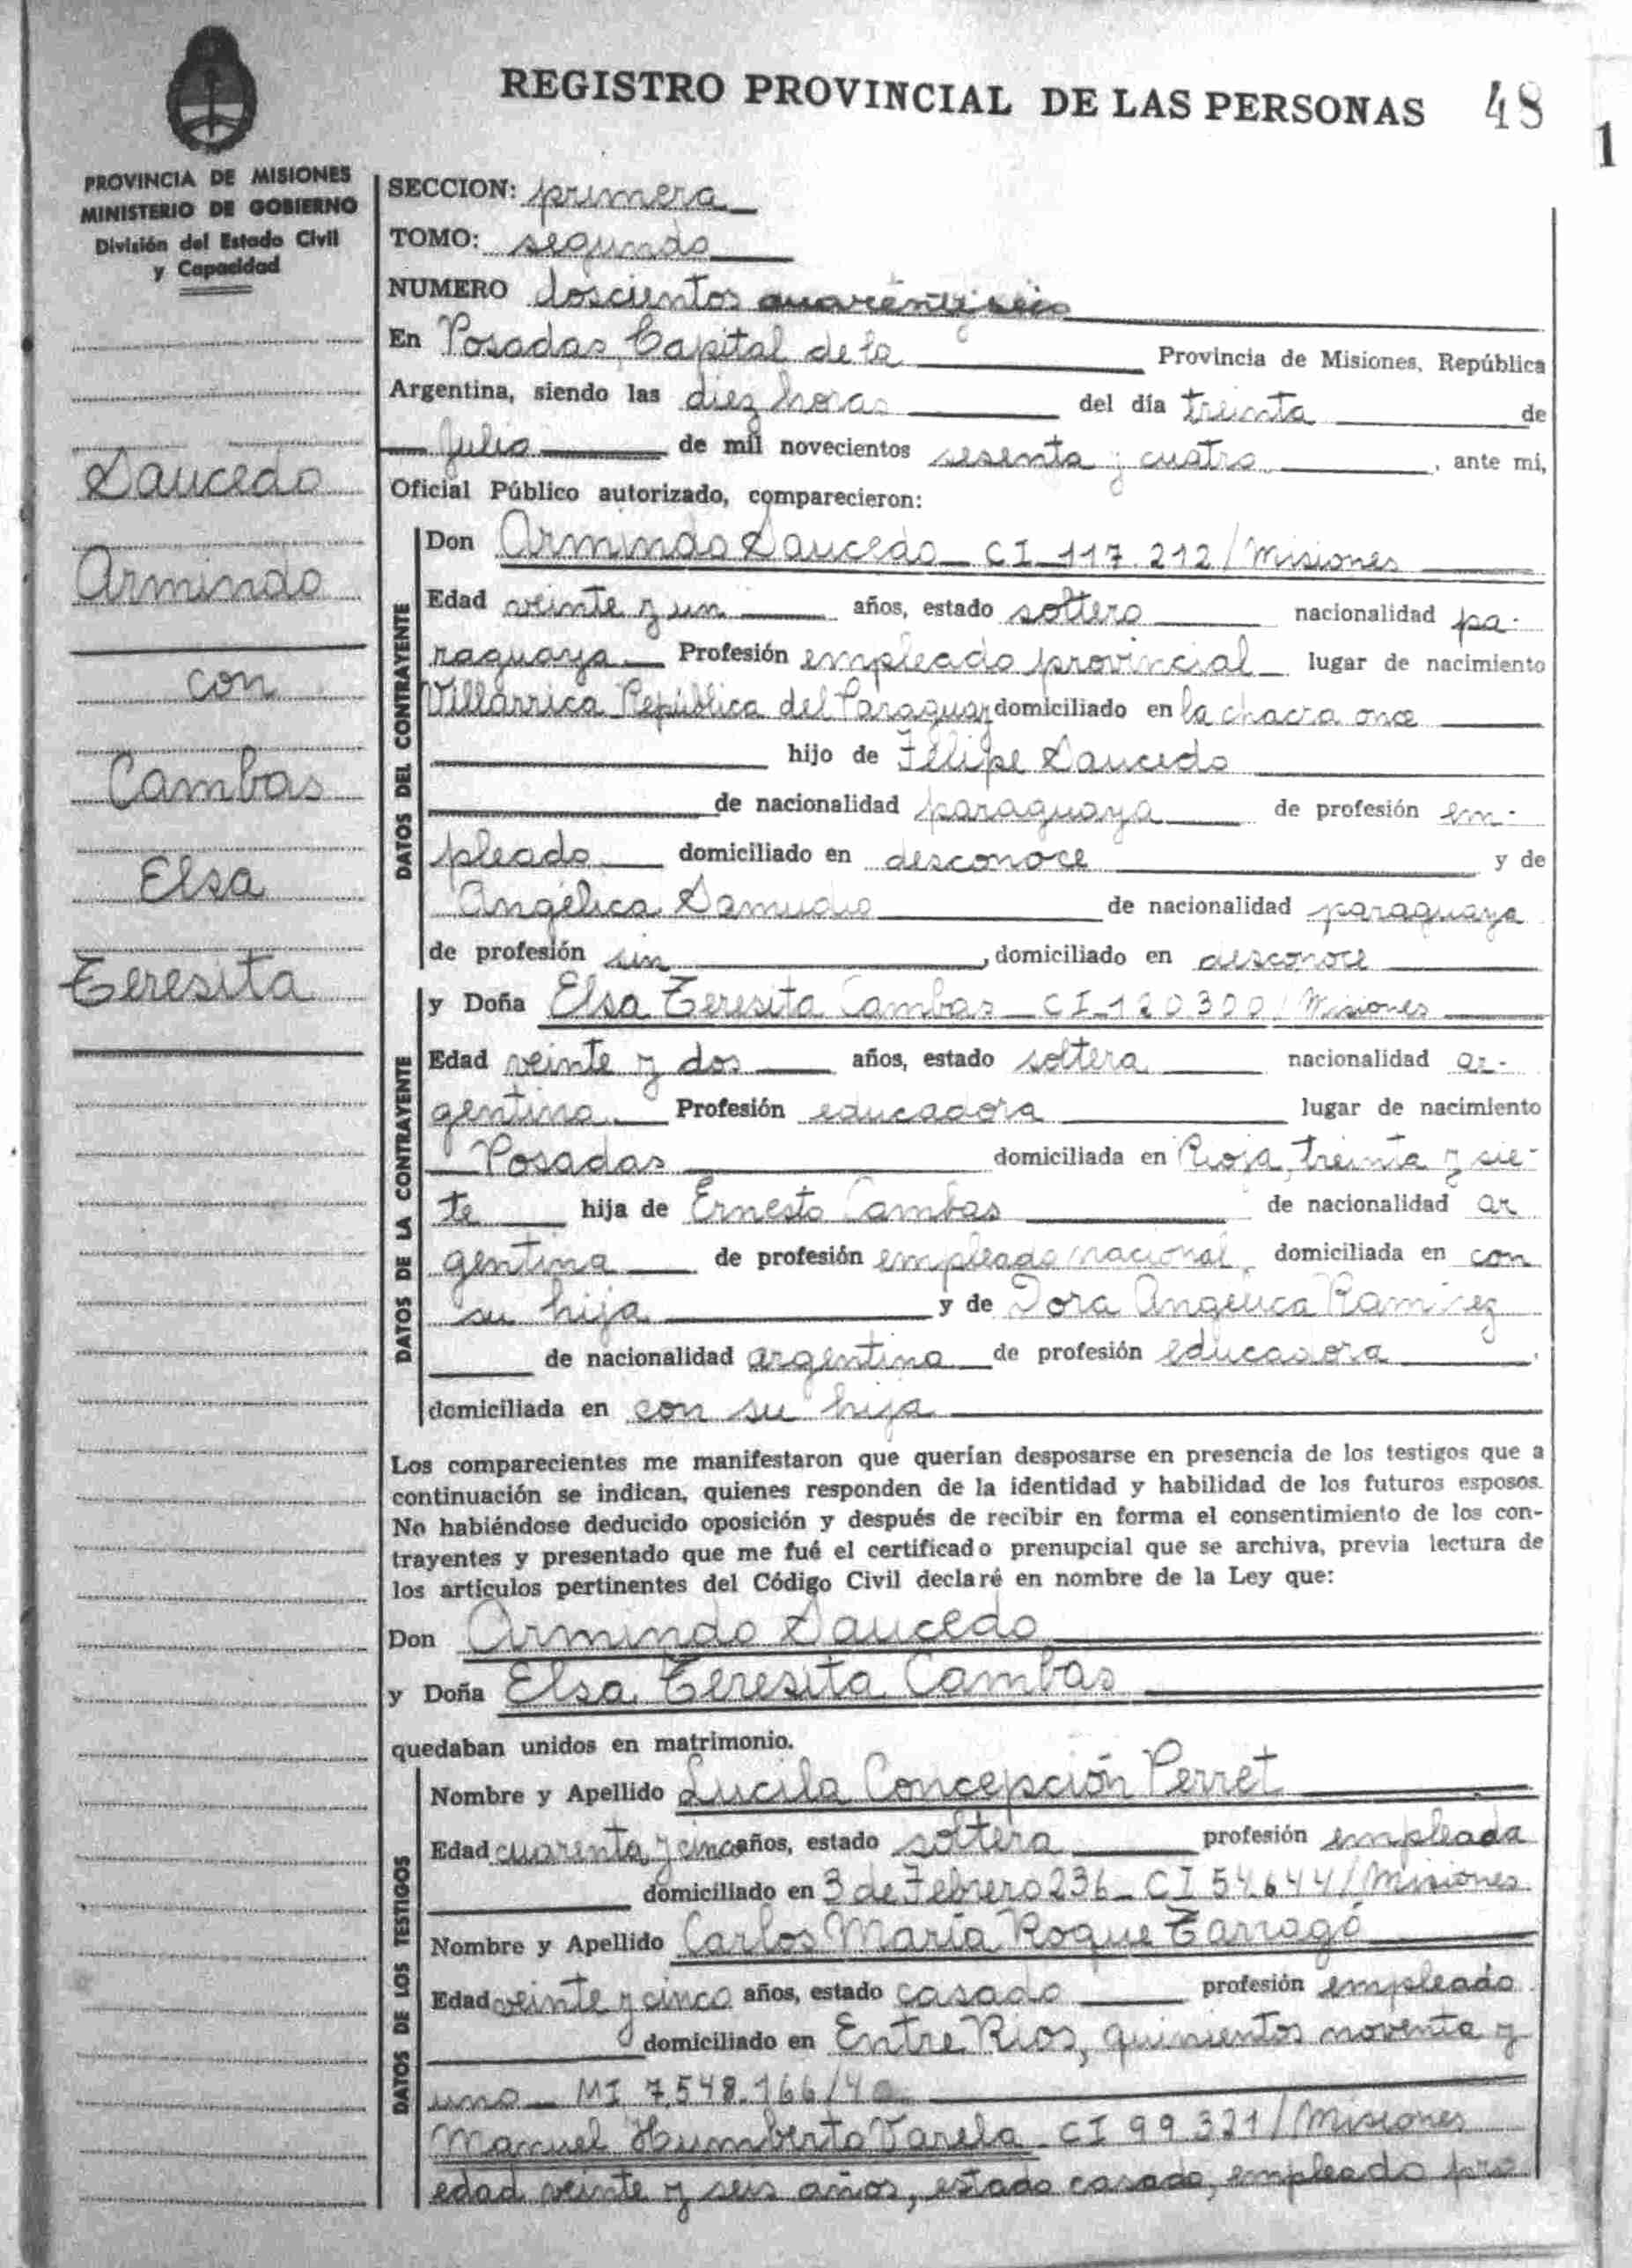 REGISTRO PROVINCIAL DE LAS PERSONAS 48
1
PROVINCIA DE MISIONES
MINISTERIO DE GOBIERNO
División del Estado Civil
y Capacidad
Saucedo
Armindo
con
Cambas
Elsa
Teresita
SECCION: primera
TOMO: segundo
NUMERO doscientos cuarentiseis
En Posadas, Capital de la Provincia de Misiones, República
Argentina, siendo las diez horas del día treinta de
Julio de mil novecientos sesenta y cuatro, ante mi,
Oficial Público autorizado, comparecieron:
DATOS DEL CONTRAYENTE
Don Armindo Saucedo CI 117.212/Misiones
Edad veinte y un años, estado soltero nacionalidad pa-
raguaya Profesión empleado provincial lugar de nacimiento
Villarrica República del Paraguay domiciliado en la chacra once
hijo de Felipe Saucedo
de nacionalidad paraguaya de profesión em-
pleado domiciliado en desconoce y de
Angélica Samudio de nacionalidad paraguaya
de profesión sin, domiciliado en desconoce
DATOS DE LA CONTRAYENTE
y Doña Elsa Teresita Cambas CI 120.320/Misiones
Edad veinte y dos años, estado soltera nacionalidad ar-
gentina Profesión educadora lugar de nacimiento
Posadas domiciliada en Rioja, treinta y sie-
te hija de Ernesto Cambas de nacionalidad ar
gentina de profesión empleado nacional, domiciliada en con
su hija y de Dora Angélica Ramírez
de nacionalidad argentina de profesión educadora,
domiciliada en con su hija
Los comparecientes me manifestaron que querían desposarse en presencia de los testigos que a
continuación se indican, quienes responden de la identidad y habilidad de los futuros esposos.
No habiéndose deducido oposición y después de recibir en forma el consentimiento de los con-
trayentes y presentado que me fué el certificado prenupcial que se archiva, previa lectura de
los artículos pertinentes del Código Civil declaré en nombre de la Ley que:
Don Armindo Saucedo
y Doña Elsa Teresita Cambas
quedaban unidos en matrimonio.
DATOS DE LOS TESTIGOS
Nombre y Apellido Lucila Concepción Perret
Edad cuarenta y cinco años, estado soltera profesión empleada
domiciliado en 3 de Febrero 236 - CI 54.644/Misiones
Nombre y Apellido Carlos María Roque Tarragó
Edad veinte y cinco años, estado casado profesión empleado
domiciliado en Entre Rios, quinientos noventa y
uno - MI 7.548.166/40
Manuel Humberto Varela CI 99.321/Misiones
edad veinte y seis años, estado casado, empleado pro